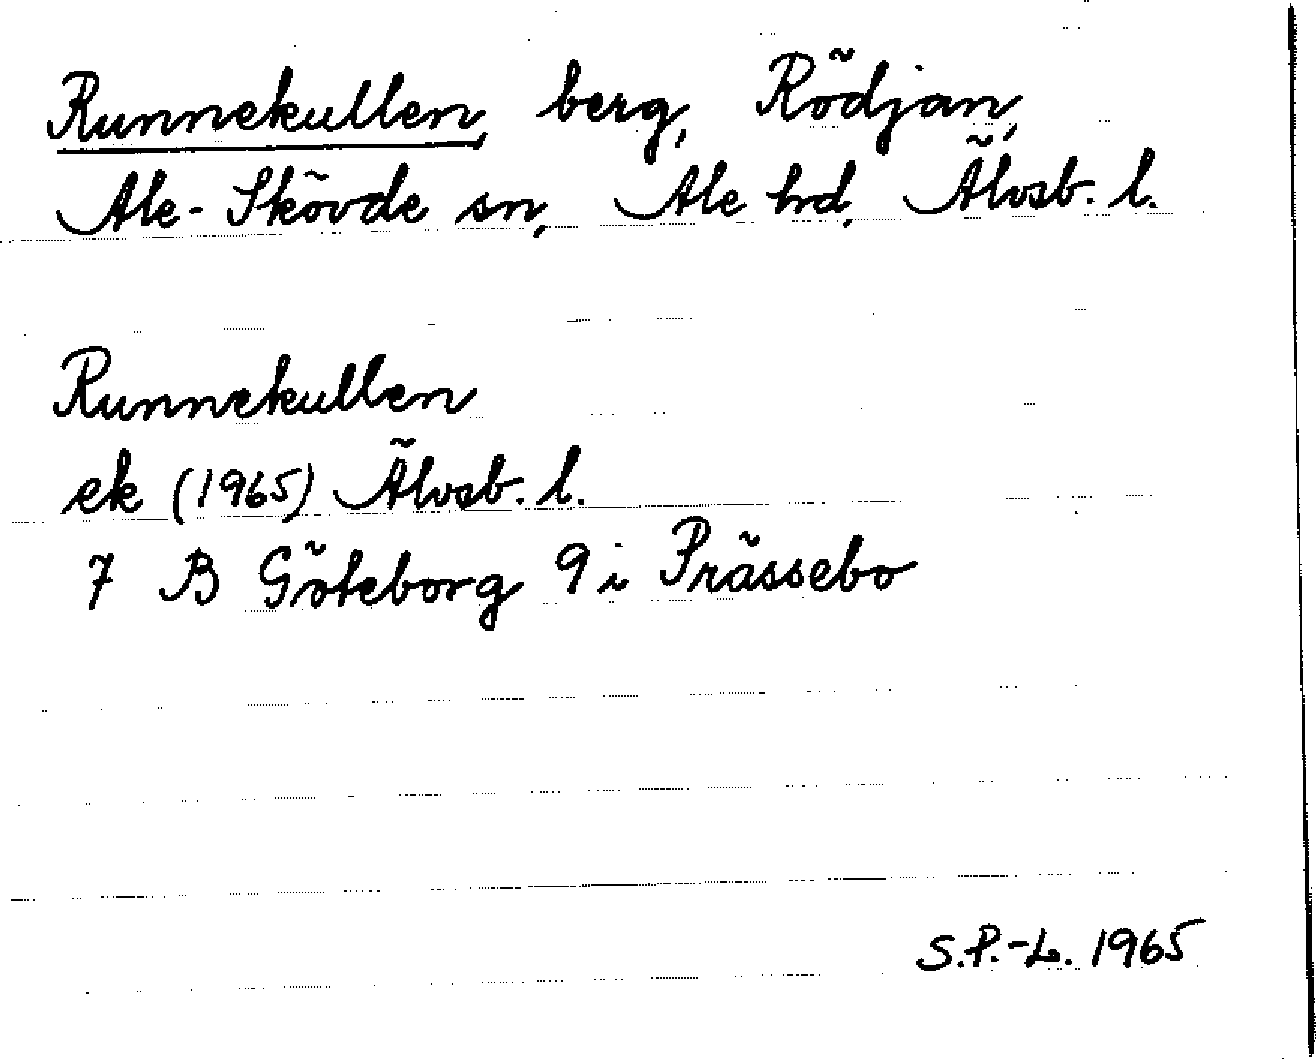 Runnekullen, berg, Rödjan,
Ale-Skövde sn, Ale hd, Älvsb. l.
Runnekullen
ek (1965) Älvsb. l.
7 B Göteborg 9 i Prässebo
S.P.-L. 1965